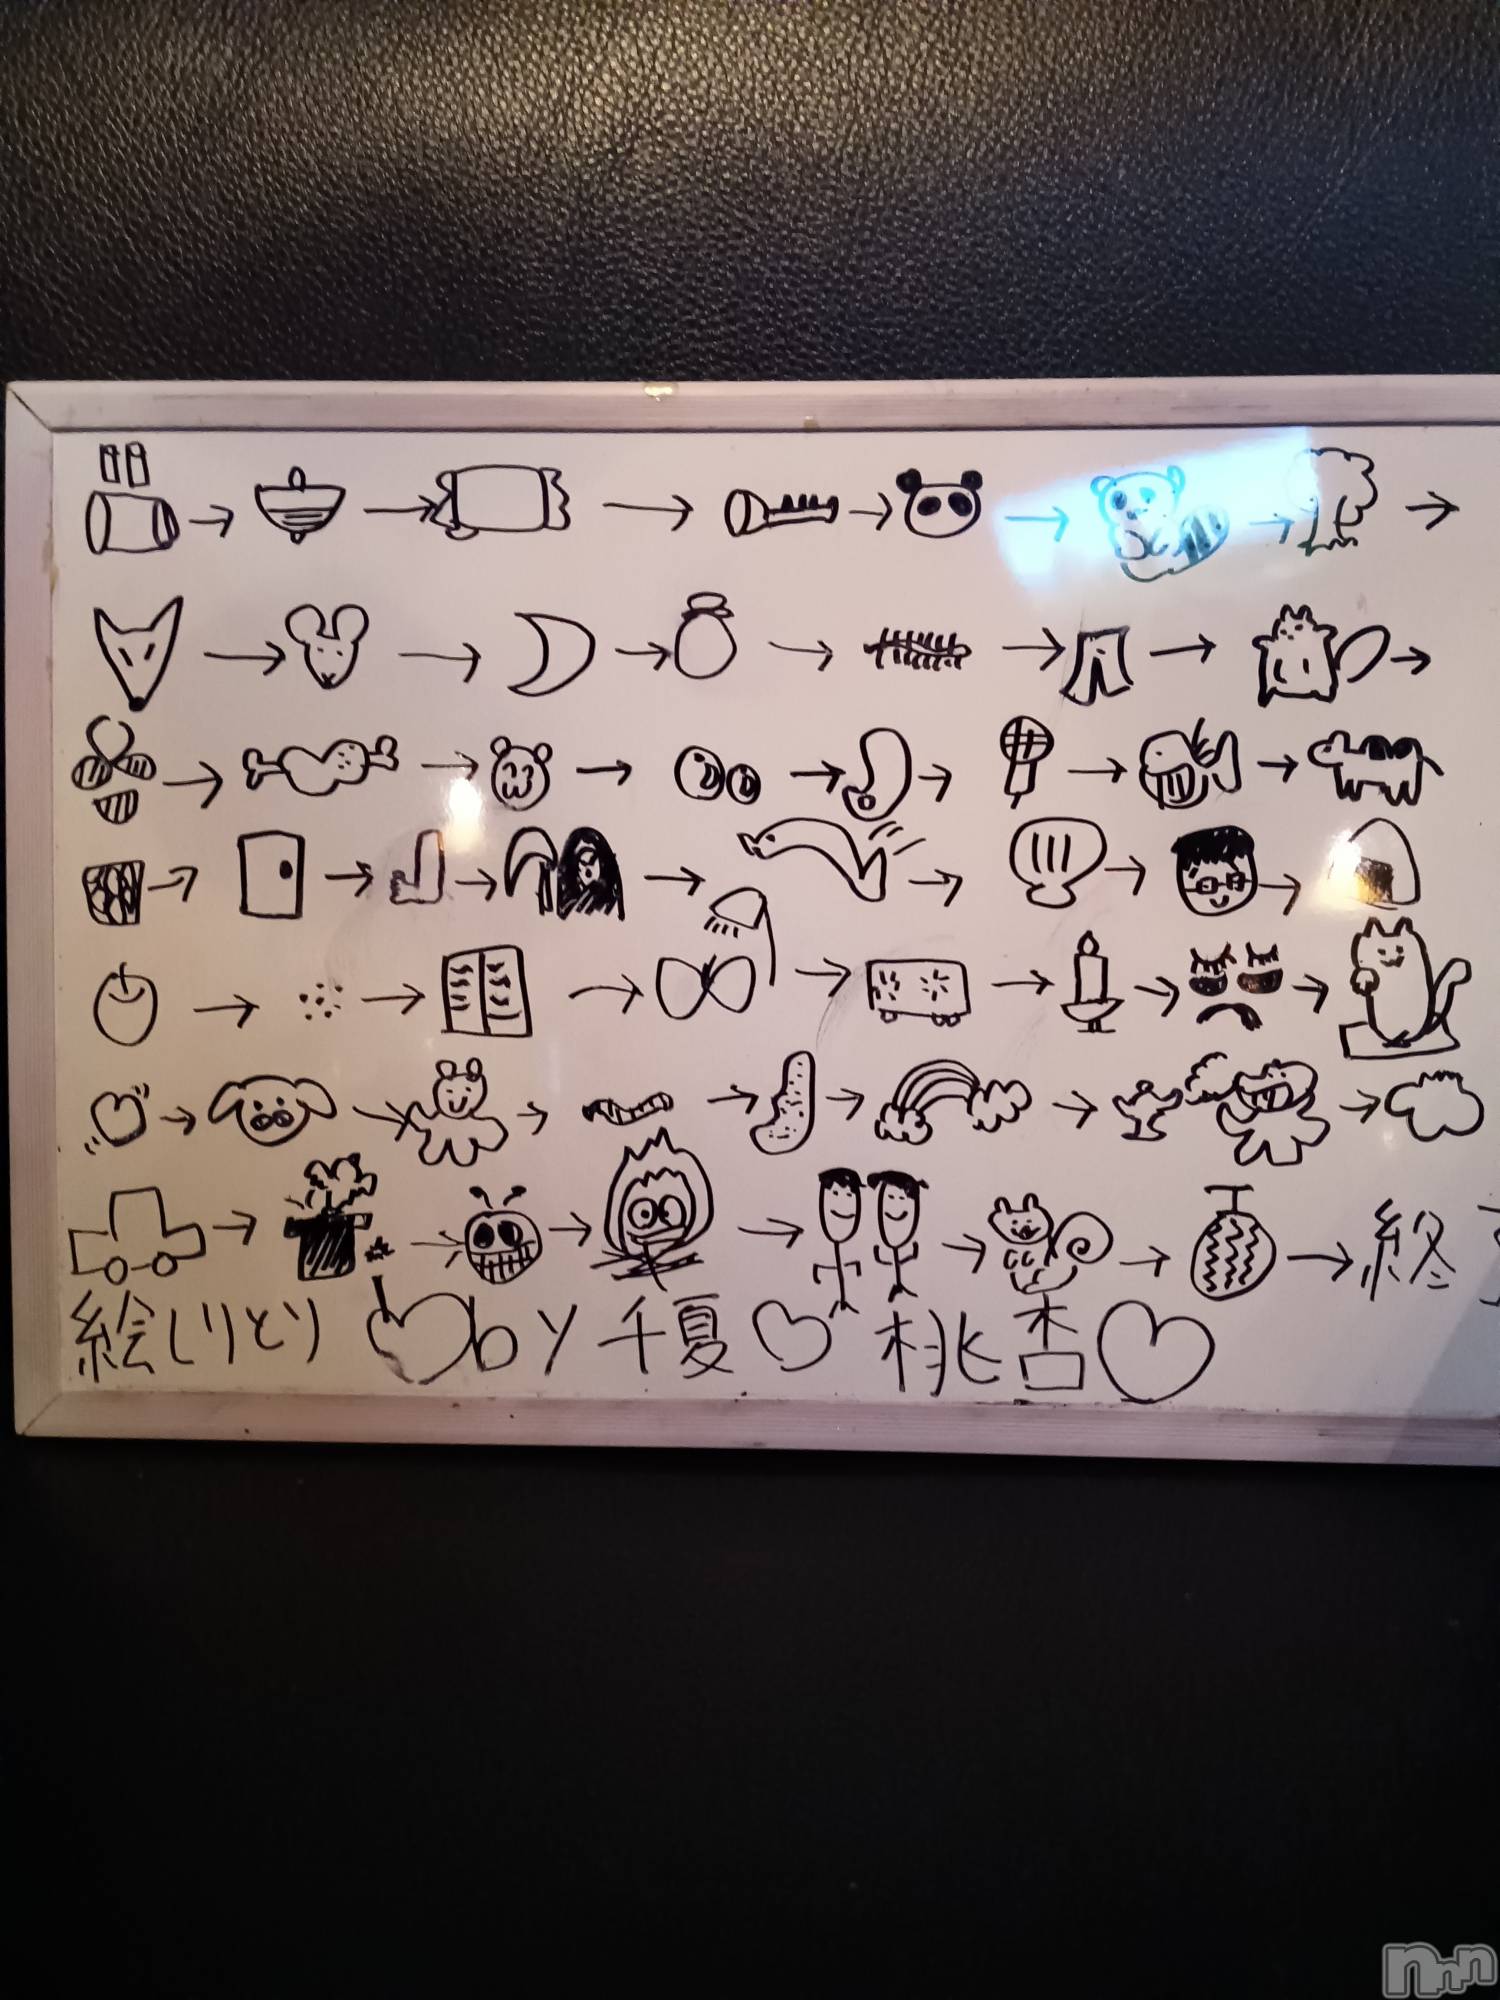 終
絵しりとり ♡by 千夏♡ 桃杏♡
nnn